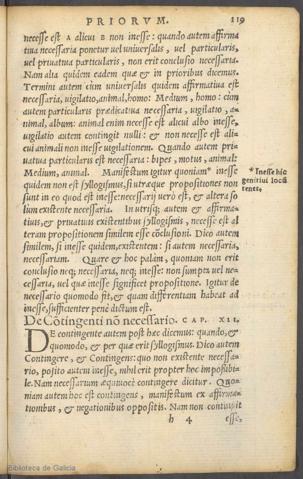 PRIORVM. 119
necesse est A alicui B non inesse: quando autem affirma
tiua necessaria ponetur uel uniuersalis, uel particularis,
uel priuatua particularis, non erit conclusio necessaria.
Nam alia quidem eadem quæ & in prioribus dicemus.
Termini autem cum uniuersalis quidem affirmatiua est
necessaria, uigilatio, animal, homo: Medium, homo: cùm
autem particularis prædicatiua necessaria, uigilatio, a=
nimal, album: animal enim necesse est alicui albo inesse,
uigilatio autem contingit nulli: & non necesse est ali=
cui animali non inesse uigilationem. Quando autem pri=
uatiua particularis est necessaria: bipes, motus, animal:
Medium, animal. Manifestum igitur quoniam* inesse
quidem non est syllogismus, si utræque propositiones non
sunt in eo quod est inesse: necessariū uerò est, & altera so
lum existente necessaria. In utrisq; autem & affirma=
tiuis, & priuatiuis existentibus syllogismis, necesse est al
teram propositionem similem esse cōclusioni. Dico autem
similem, si inesse quidem, existentem: si autem necessaria,
necessariam. Quare & hoc palàm, quoniam non erit
conclusio neq; necessaria, neq; inesse: non sumpta uel ne=
cessaria, uel quæ inesse significet propositione. Igitur de
necessario quomodo fit, & quam differentiam habeat ad
inesse, sufficienter penè dictum est.
* Inesse hic
genitiui locū
tenet.
De Cōtingenti nō necessario. CAP. XII.
DE contingente autem post hæc dicemus: quando, &
quomodo, & per quæ erit syllogismus. Dico autem
Contingere, & Contingens: quo non existente necessa=
rio, posito autem inesse, nihil erit propter hoc impossibi=
le. Nam necessarium æquiuocè contingere dicitur. Quo=
niam autem hoc est contingens, manifestum ex affirma=
tionibus, & negationibus oppositis. Nam non contingit
h 4 esse,
Biblioteca de Galicia